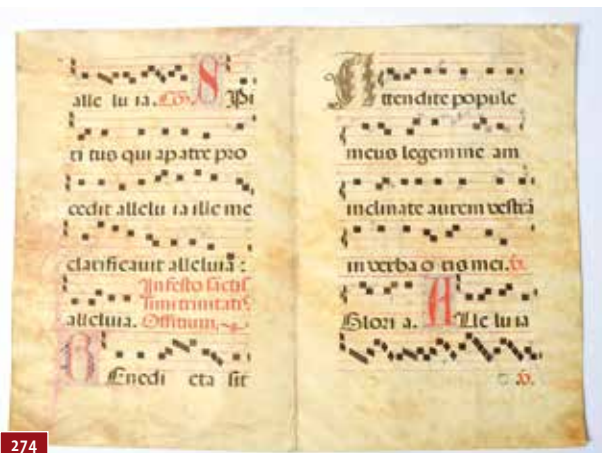 alle lu ia. Co. SPi
ri tus qui a patre pro
cedit allelu ia ille me
clarificauit alleluia :
In festo sanctis
alleluia. simi trinitatis.
Offitium.
BEnedi cta sit
Attendite popule
meus legem me am
inclinate aurem vestrā
in verba o ris mei. v.
Glori a. ALle lu ia
v.
274